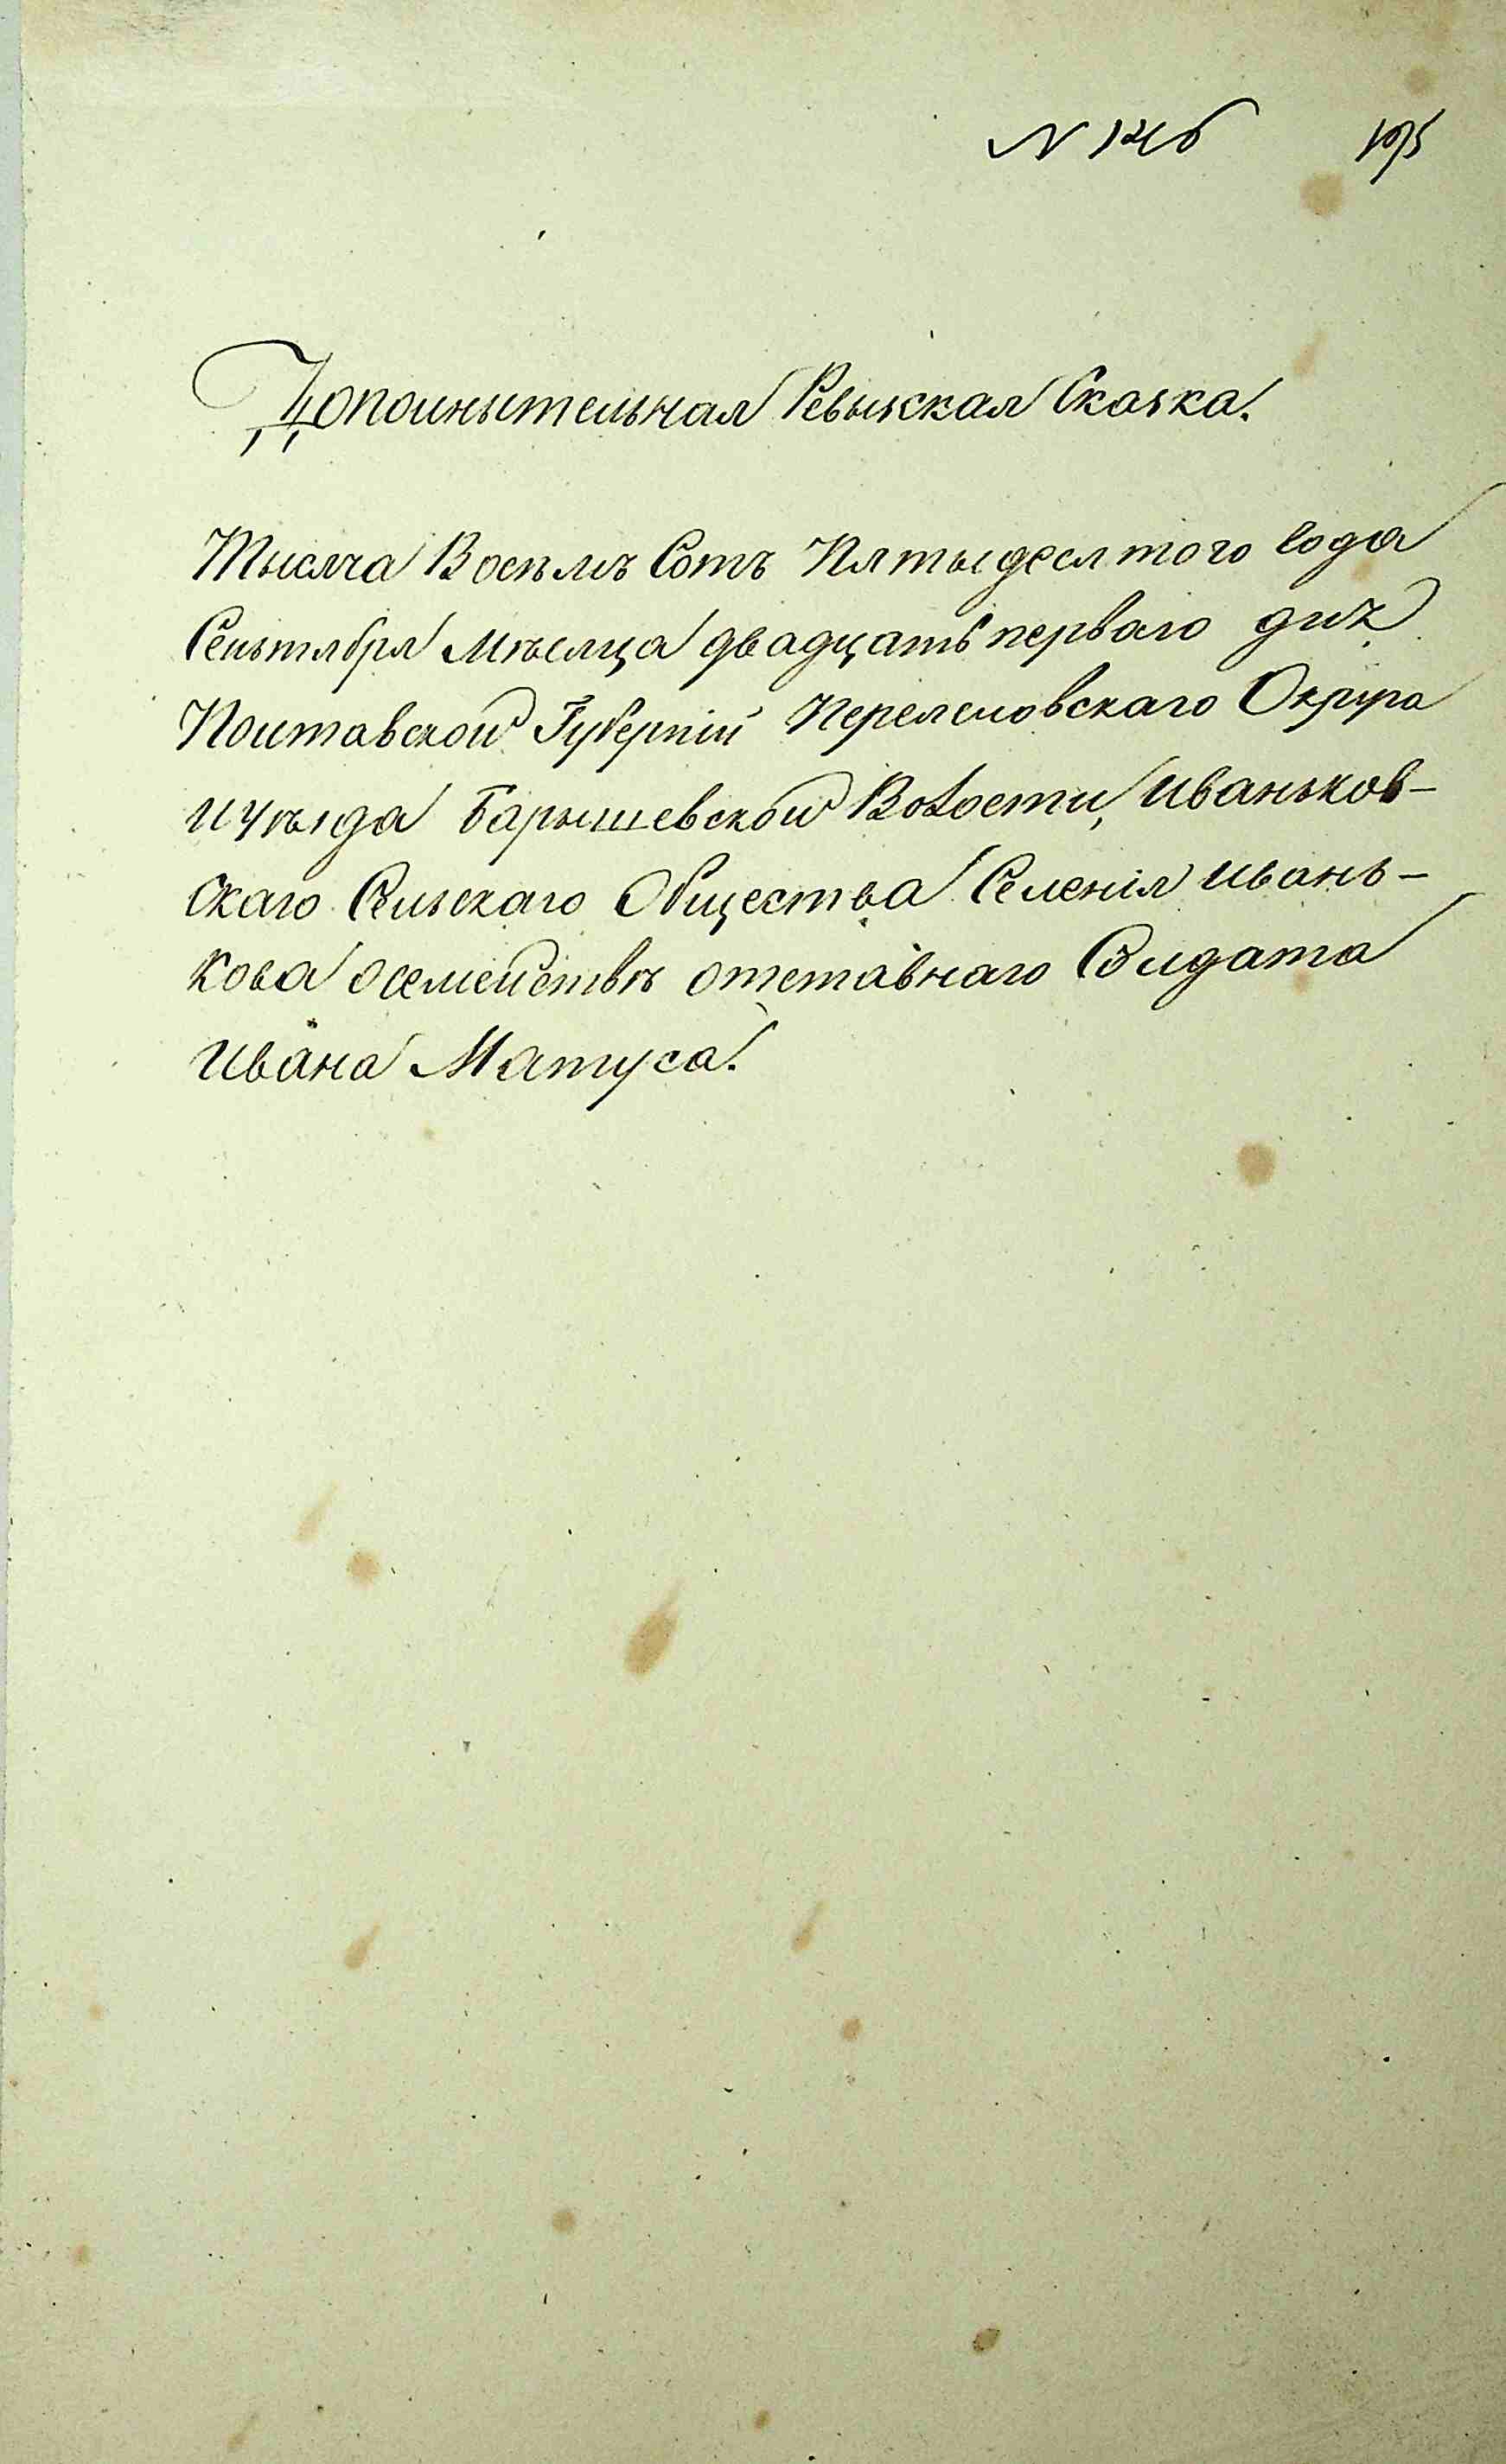 N 1246
Дополнытельная Ревыжская Сказка.
Тысяча Восѣмъ Сотъ Пятыдесятого Года
Сеньтября Мѣсяца двадцать перваго дня
Полтавской Губерніи Переяславского Округа
и уѣзда Барышевской Волости, Иваньков-
скаго Сельскаго Общества Селенія Ивань-
кова о семействѣ отставнаго Солдата
Ивана Матуса.